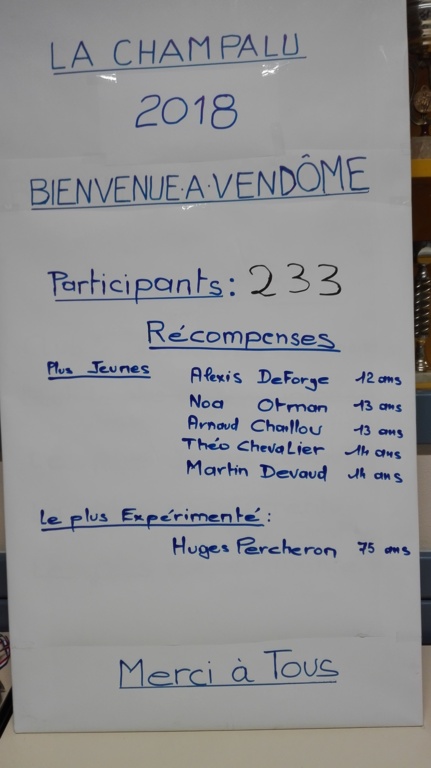 LA CHAMPALU
2018
BIENVENUE.A.VENDÔME
Participants: 233
Récompenses
Plus Jeunes Alexis DeForge 12 ans
Noa Otman 13 ans
Arnaud Chaillou 13 ans
Théo Chevalier 14 ans
Martin Devaud 14 ans
Le plus Expérimenté:
Huges Percheron 75 ans
Merci à Tous